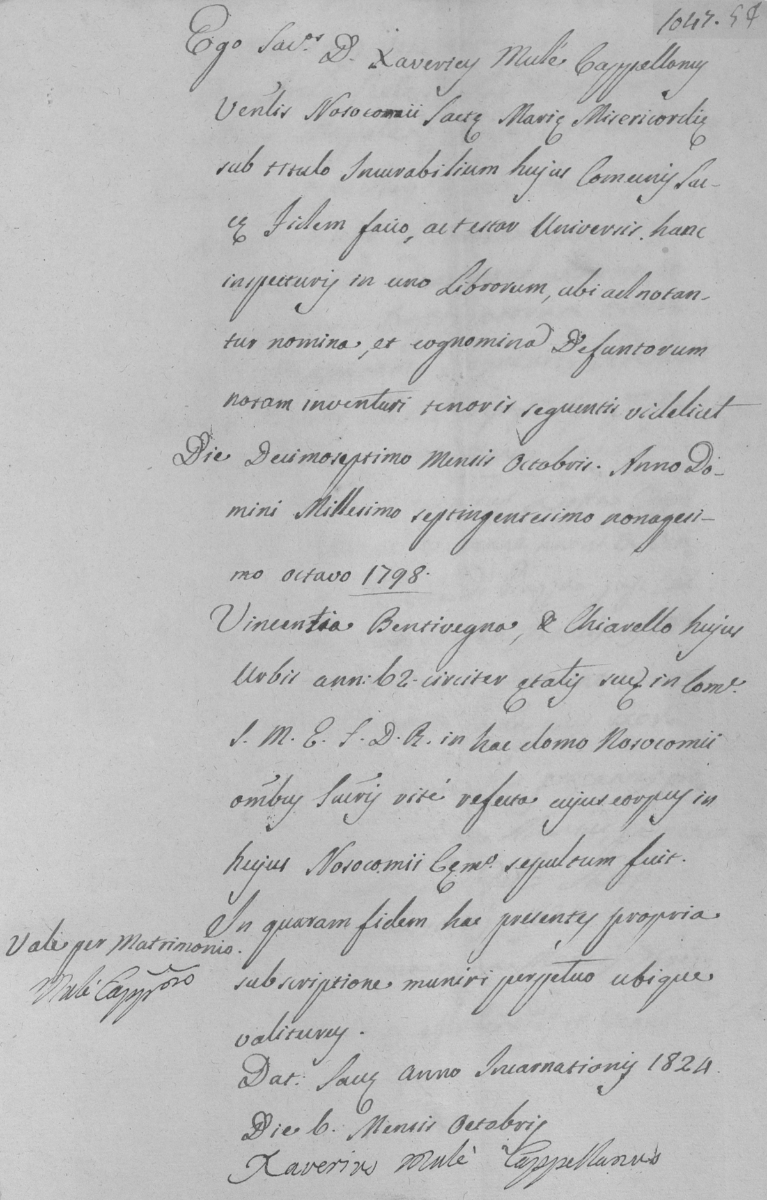 1047. 54
Ego Sac.s D. Xaverius Mulé Cappellanus
Ven̄lis Nosocomii Sactę Marię Misericordię
sub titulo Incurabilium hujus Comunis Sac-
cę Fidem facio, ac testor Universis, hanc
inspecturis in uno Librorum, ubi adnotan-
tur nomina, et cognomina Defuntorum
notam inventuri tenoris sequentis videlicet
Die Decimoseptimo Mensis Octobris. Anno Do-
mini Millesimo septingentesimo nonagesi-
mo octavo 1798.
Vincentia Bentivegna, & Chiarello hujus
Urbis ann: 62 circiter ętatis suę in Com.e
S. M. E. S. D. R. in hac domo Nosocomii
om̄bus Sacris rité refecta cujus corpus in
hujus Nosocomii Cęm.o sepultum fuit.
In quaram fidem hac presentes propria
Vale per Matrimonio.
subscriptione muniri perpetuo ubique
Mulé Capp.no
valiturus.
Dat: Saccę anno Incarnationis 1824
Die 6. Mensis Octobris
Xaverius Mulé Cappellanus